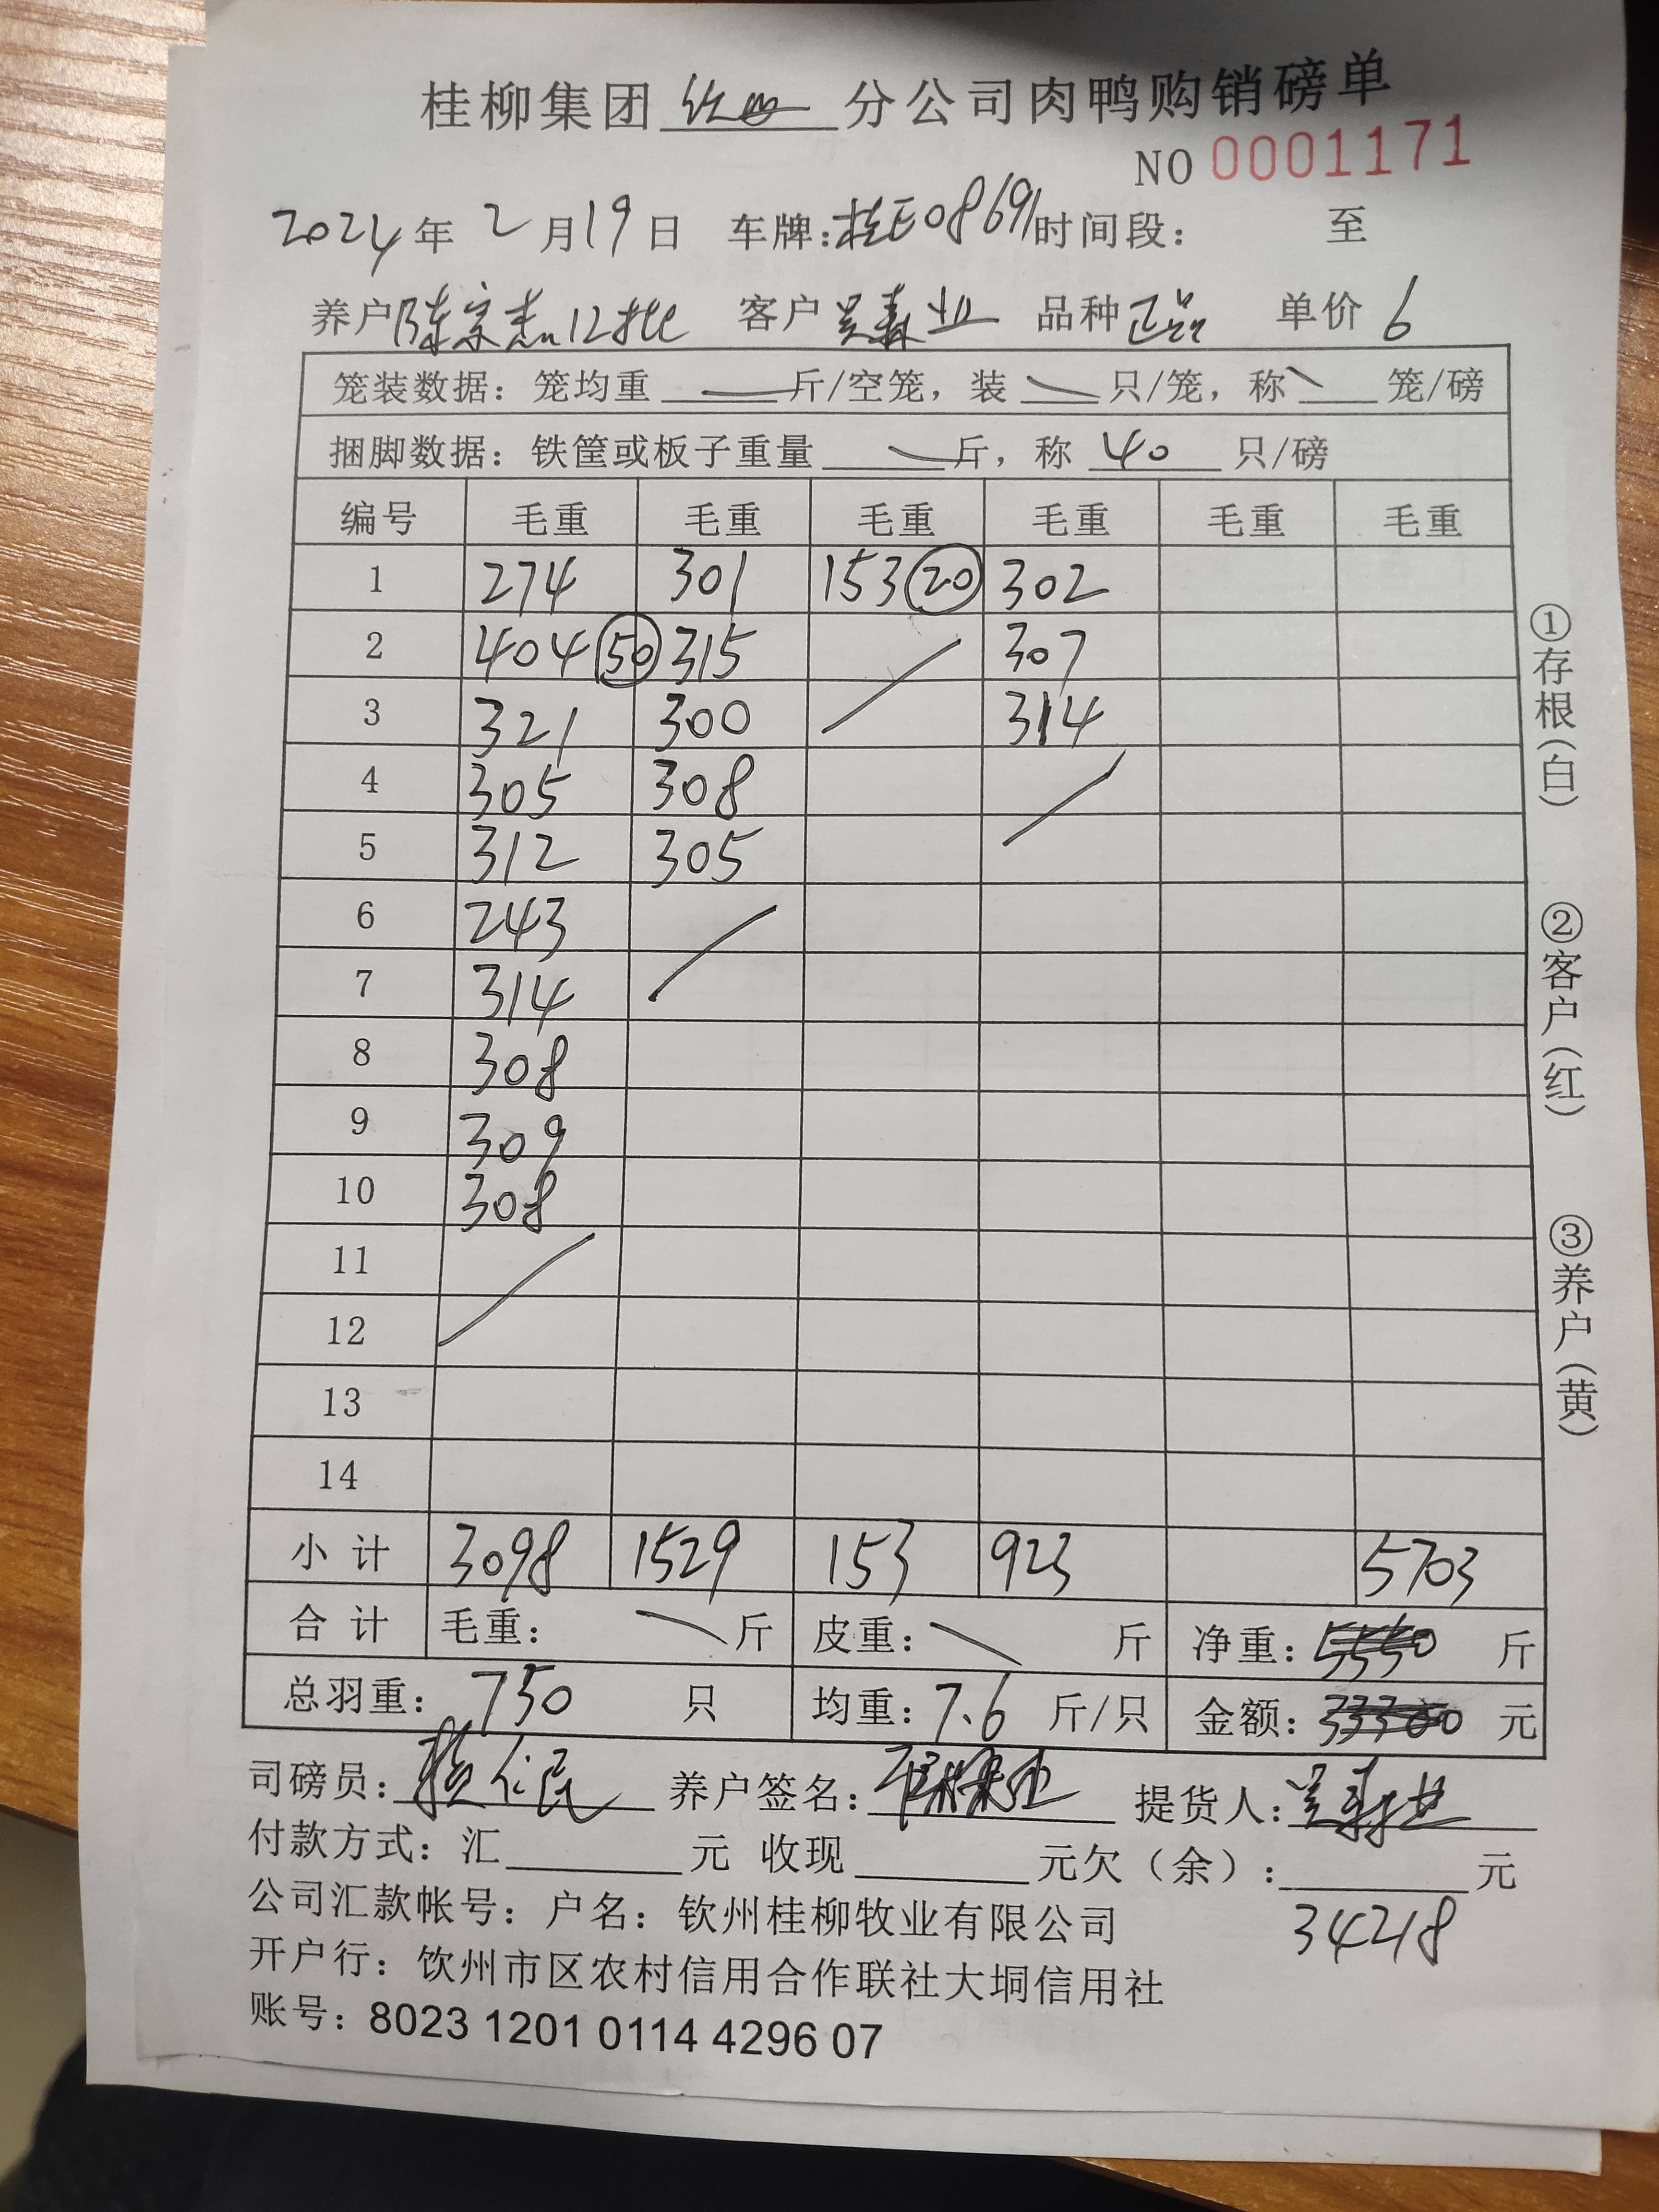 桂柳集团 钦州 分公司肉鸭购销磅单
NO 0001171
2024年 2月19日 车牌:桂E08691 时间段: 至
养户 陈宗杰12批 客户 吴寿业 品种 正品 单价 6
笼装数据: 笼均重 斤/空笼, 装 只/笼, 称 笼/磅
捆脚数据: 铁筐或板子重量 斤, 称 40 只/磅
编号 毛重 毛重 毛重 毛重 毛重 毛重
1 274 301 153 20 302
2 404 50 315 307
3 321 300 314
4 305 308
5 312 305
6 243
7 314
8 308
9 309
10 308
11
12
13
14
小计 3098 1529 153 923 5703
合计 毛重: 斤 皮重: 斤 净重: 5550 斤
总羽重: 750 只 均重: 7.6 斤/只 金额: 33300 元
司磅员: 仁民 养户签名: 提货人: 吴寿业
付款方式: 汇 元 收现 元欠(余): 元
公司汇款帐号: 户名: 钦州桂柳牧业有限公司 34218
开户行: 钦州市区农村信用合作联社大垌信用社
账号: 8023 1201 0114 4296 07
①存根(白)
②客户(红)
③养户(黄)